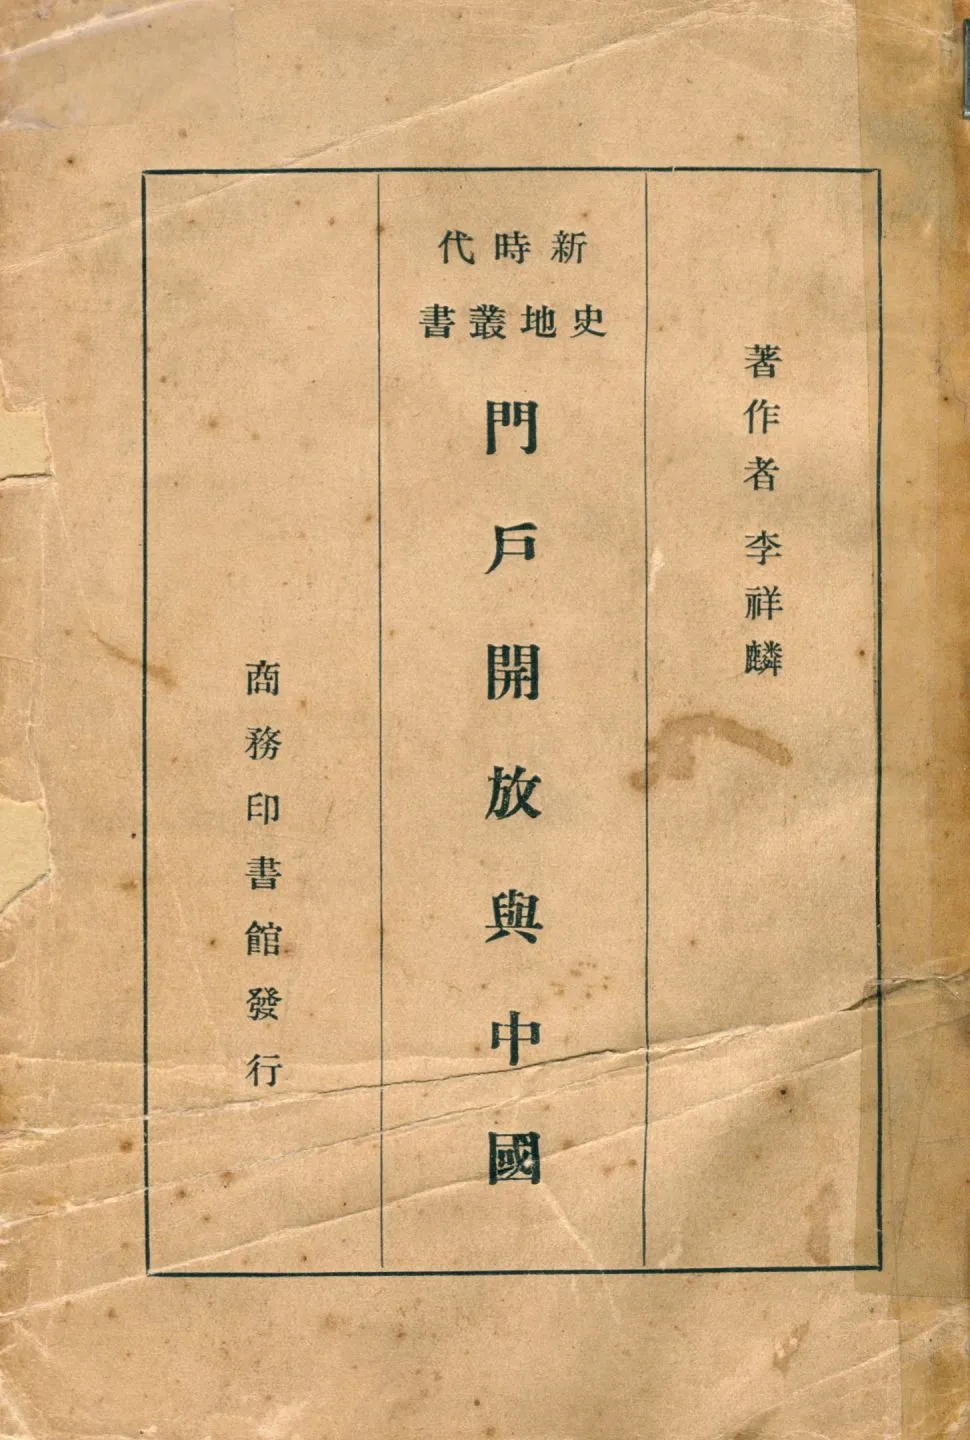 著作者 李祥麟
新時代
史地叢書
門戶開放與中國
商務印書館發行